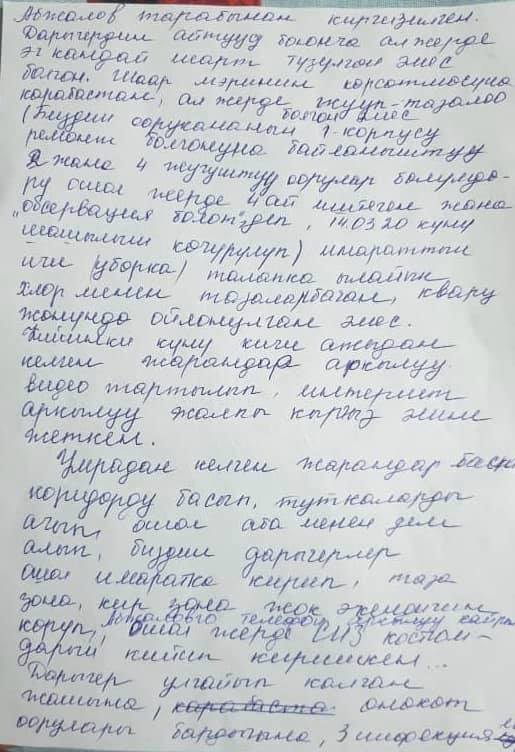 Абжалов тарабынан киргизилген.
Дарыгердин айтууд боюнча ал жерде
эч кандай шарт тузулгон эмес
болгон. Шаар мэринин корсотмосуно
карабастан, ал жерде жууп-тазалоо
болгон эмес
(Биздин оорукананын 1-корпусу
ремонт болгонуна байланыштуу
жана 4 жугуштуу оорулар болумдо-
ру ошол жерде 4 ай иштеген жана
"обсервация болот" деп, 14.03.20 куну
шашылыш кочурулуп) имараттын
ичи (уборка) талапка ылайык
хлор менен тазаланбаган, кварц
жонундо ойлонулган эмес.
Кийинки куну киги аткадан
келген жарандар аркылуу
видео тартылып, интернет
аркылуу жалпы кыргыз элине
жеткен.
Умрадан келген жарандар баскан
коридорду басып, туткаларды
ачып, ошол аба менен дем
алып, биздин дарыгерлер
ошол имаратка кирип, таза
зона, кир зона жок экендигин
Абжаловго телефон аркылуу кайрыл
коруп, ошол жерде СИЗ костюм-
дарын кийип киришкен...
Дарыгер улгайып калган
жашына, карабаста онокот
оорулары бардыгына, 3 инфекция